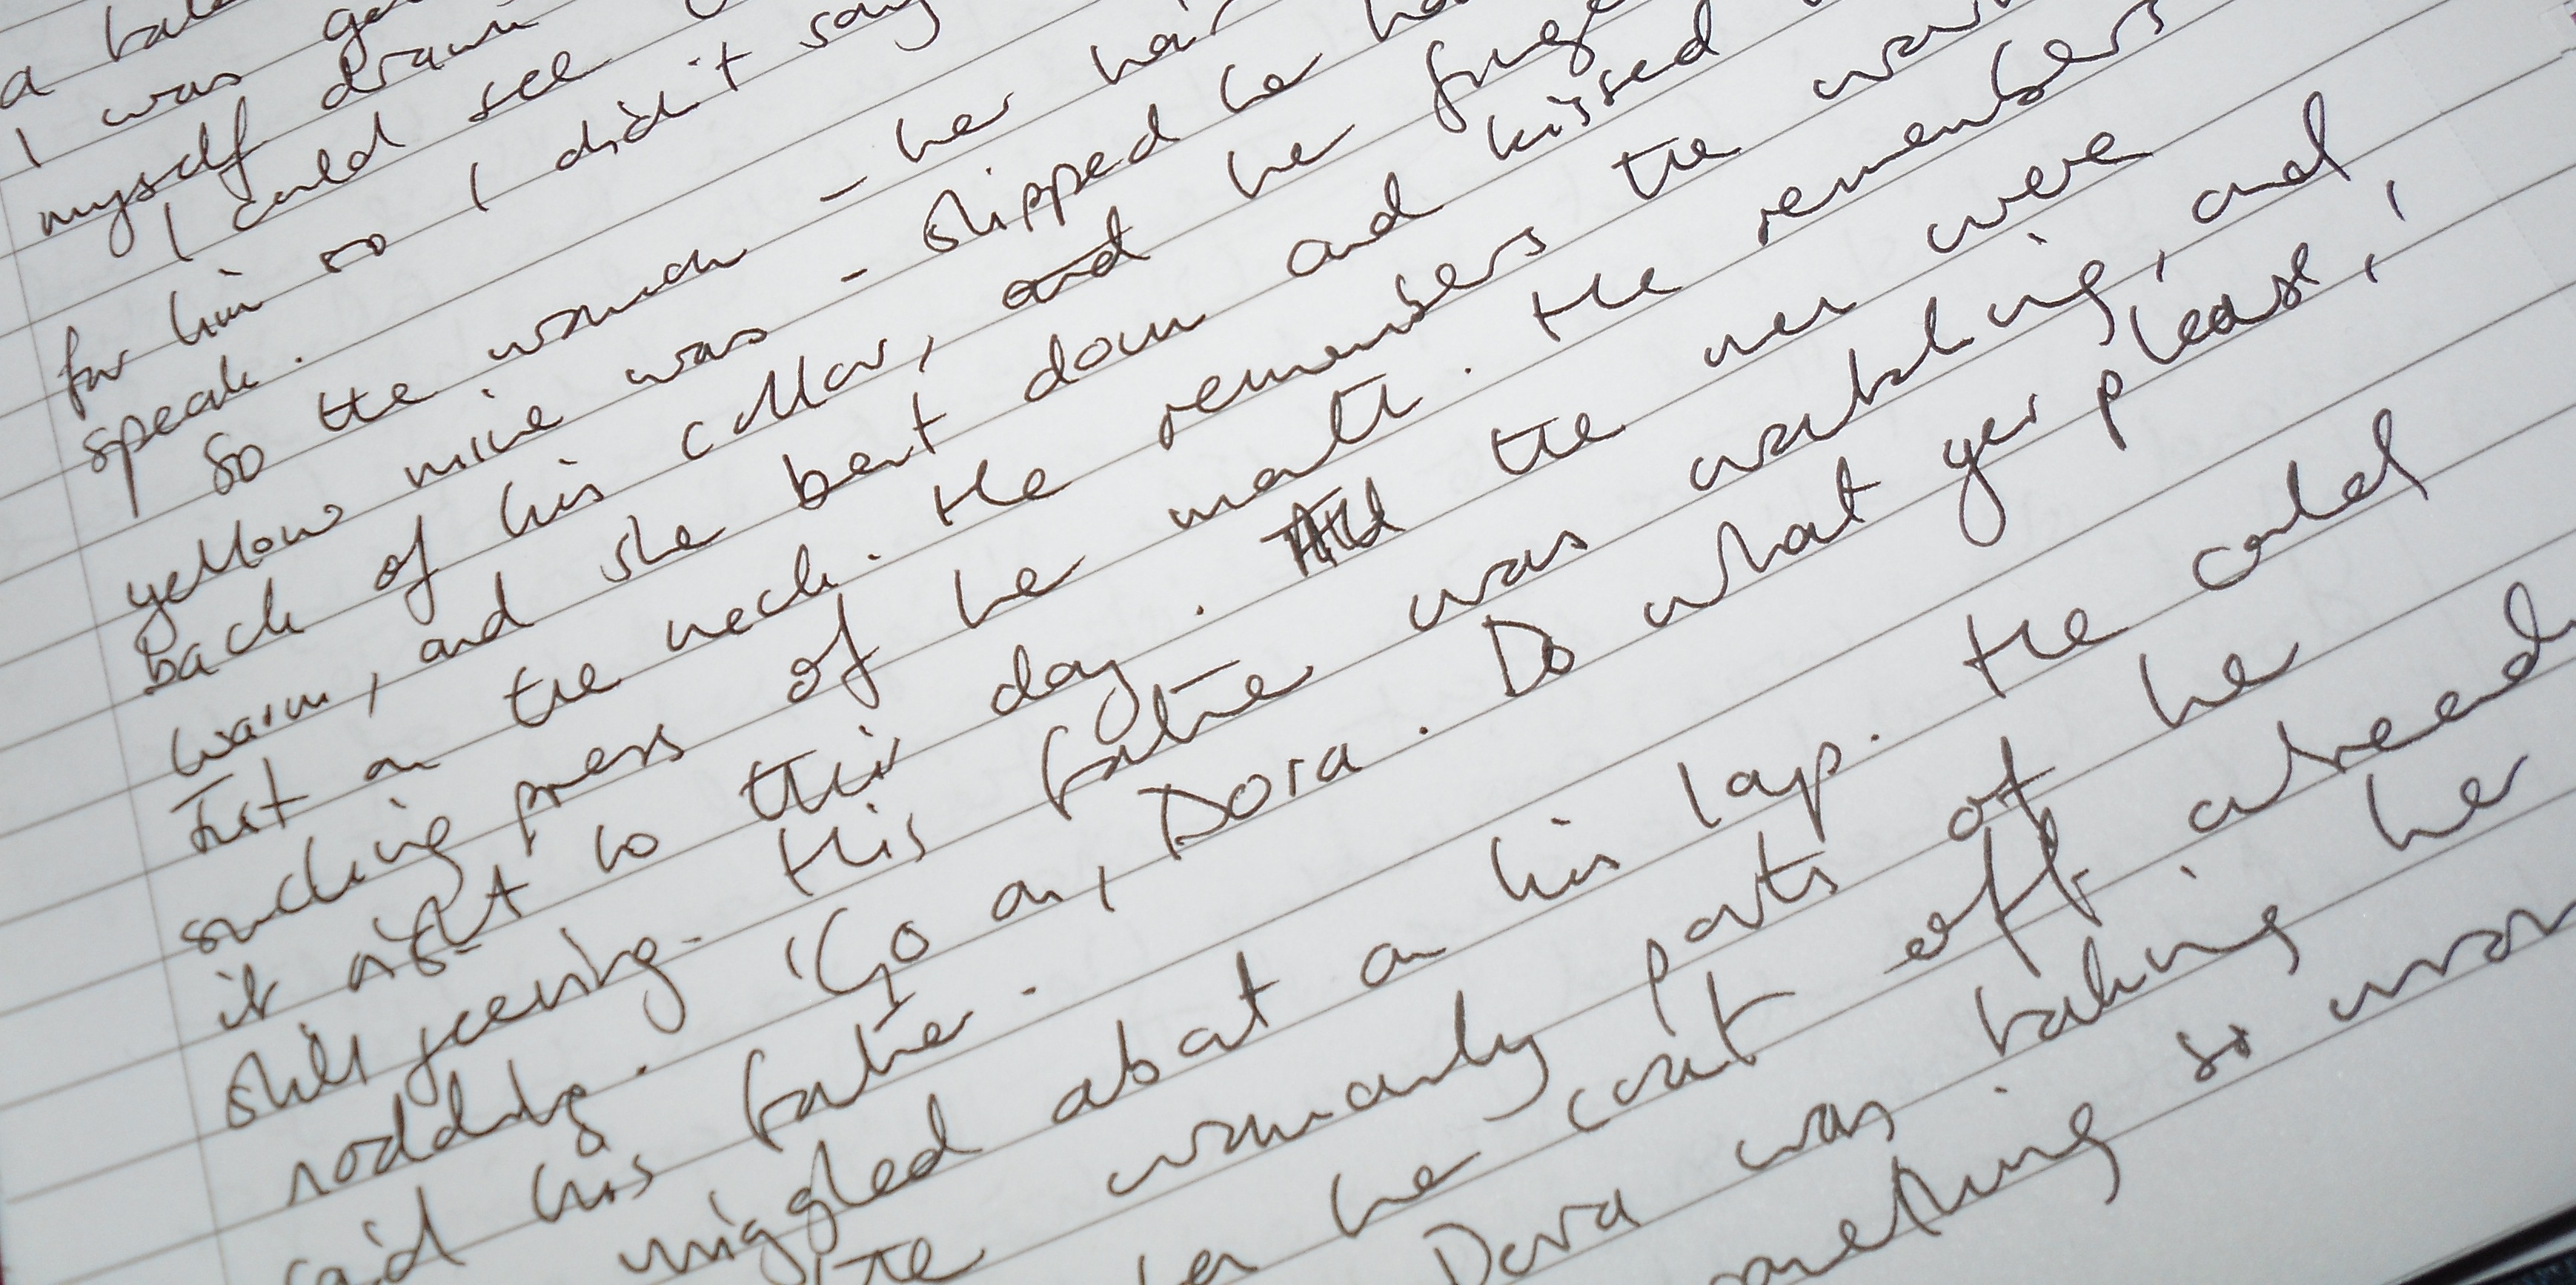 a
I was
myself drawn
I could see
for him so I didn't say
speak.
So the woman - her hair
yellow mine was - slipped her
back of his collar, and her
warm, and she bent down and kissed
Just on the neck. He remembers the
sucking press of her mouth. He remembers
it right to this day. All the men were
still jeering. His father was watching, and
nodding. 'Go on, Dora. Do what yer please,'
said his father.
wriggled about on his lap. He could
the womanly parts of her
her coat off already
Dora was taking her
something so